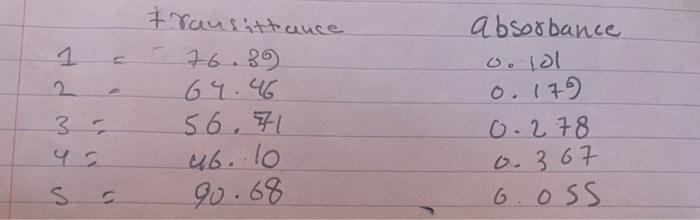 Transittance absorbance
1 = 76.89 0.101
2 = 64.46 0.179
3 = 56.71 0.278
4 = 46.10 0.367
5 = 90.68 0.055